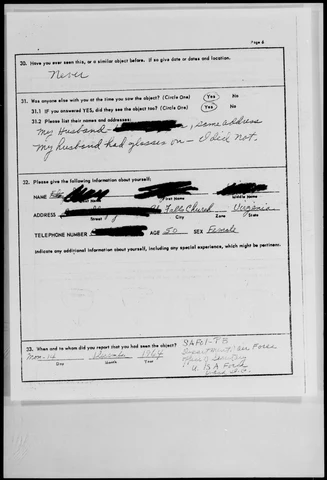 Page 6
30. Have you ever seen this, or a similar object before. If so give date or dates and location.
Never
31. Was anyone else with you at the time you saw the object? (Circle One) Yes No
31.1 IF you answered YES, did they see the object too? (Circle One) Yes No
31.2 Please list their names and addresses:
My Husband - same address
My husband had glasses on - I did not.
32. Please give the following information about yourself:
NAME
First Name Middle Name
ADDRESS Falls Church Virginia
Street City Zone State
TELEPHONE NUMBER AGE 50 SEX Female
Indicate any additional information about yourself, including any special experience, which might be pertinent.
33. When and to whom did you report that you had seen the object?
Mon. 14 December 1964
Day Month Year
Department Air Force